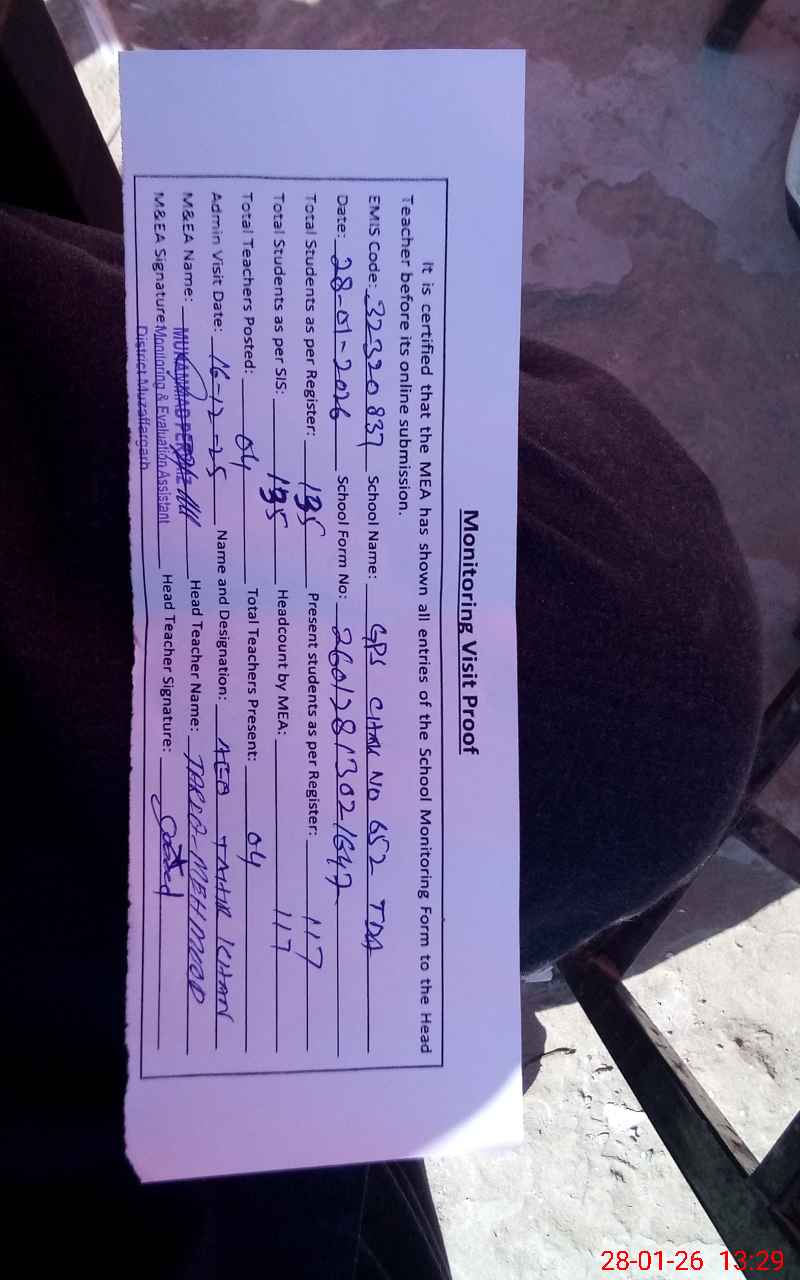 Monitoring Visit Proof
It is certified that the MEA has shown all entries of the School Monitoring Form to the Head
Teacher before its online submission.
EMIS Code: 32320837 School Name: GPS CHAK NO 652 TDA
Date: 28-01-2026 School Form No: 26012813021647
Total Students as per Register: 135 Present students as per Register: 117
Total Students as per SIS: 135 Headcount by MEA: 117
Total Teachers Posted: 04 Total Teachers Present: 04
Admin Visit Date: 16-12-25 Name and Designation: AEO KHAN
M&EA Name: MUHAMMAD Head Teacher Name: TARIQ-MEHMOOD
M&EA Signature: Monitoring & Evaluation Assistant Head Teacher Signature:
District Muzaffargarh
28-01-26 13:29